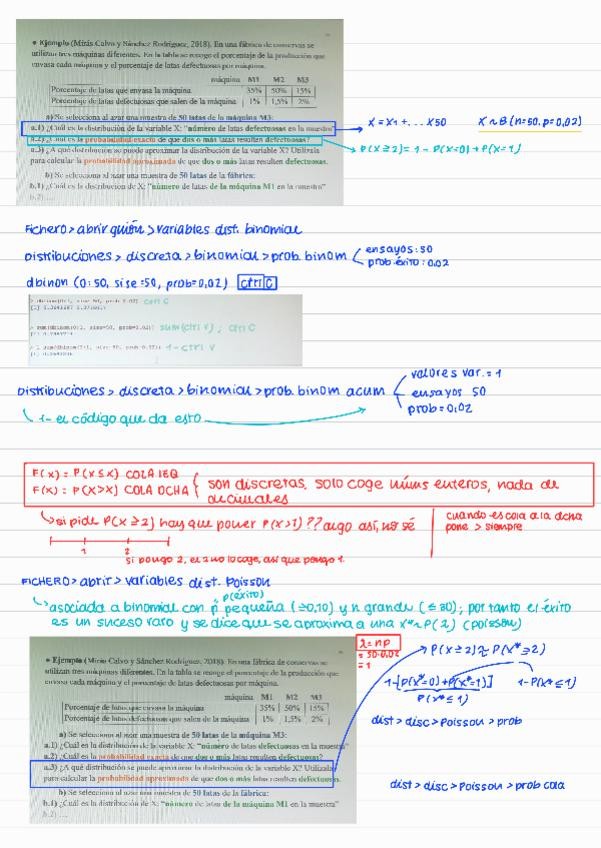 • Ejemplo (Mirás Calvo y Sánchez Rodríguez, 2018). En una fábrica de conservas se
utilizan tres máquinas diferentes. En la tabla se recoge el porcentaje de la producción que
envasa cada máquina y el porcentaje de latas defectuosas por máquina.
máquina M1 M2 M3
Porcentaje de latas que envasa la máquina 35% 50% 15%
Porcentaje de latas defectuosas que salen de la máquina 1% 1,5% 2%
a) Se selecciona al azar una muestra de 50 latas de la máquina M3:
a.1) ¿Cuál es la distribución de la variable X: "número de latas defectuosas en la muestra"
X = X1 + ... X50 X ~ B(n=50, p=0,02)
a.2) ¿Cuál es la probabilidad exacta de que dos o más latas resulten defectuosas?
P(X≥2) = 1 - P(X=0) + P(X=1)
a.3) ¿A qué distribución se puede aproximar la distribución de la variable X? Utilízala
para calcular la probabilidad aproximada de que dos o más latas resulten defectuosas.
b) Se selecciona al azar una muestra de 50 latas de la fábrica:
b.1) ¿Cuál es la distribución de X: "número de latas de la máquina M1 en la muestra"
b.2) ....
Fichero > abrir guión > variables dist. binomial
Distribuciones > discreta > binomial > prob. binom
ensayos: 50
prob. éxito: 0.02
dbinom (0:50, size=50, prob=0,02) ctrl C
ctrl C
sum(ctrl V) ; ctrl C
1 - ctrl V
Distribuciones > discreta > binomial > prob. binom acum
valores var. = 1
ensayos 50
prob = 0.02
1- el código que da esto
F(x) = P(X≤x) COLA IZQ
F(x) = P(X>x) COLA DCHA
son discretas, solo coge núms enteros, nada de
decimales
si pide P(X≥2) hay que poner P(X>1)?? algo así, no sé
cuando es cola a la dcha
pone > siempre
1 2
si pongo 2, el 2 no lo coge, así que pongo 1.
FICHERO > abrir > variables dist. Poisson
p(éxito)
asociada a binomial con p pequeña (≥0,10) y n grande (≤30); por tanto el éxito
es un suceso raro y se dice que se aproxima a una X* ~ P(λ) (poisson)
λ = np
= 50·0.02
= 1
P(X≥2) ≈ P(X*≥2)
1-[P(X*=0) + P(X*=1)] 1-P(X*≤1)
P(X*≤1)
dist > disc > Poisson > prob
• Ejemplo (Mirás Calvo y Sánchez Rodríguez, 2018). En una fábrica de conservas se
utilizan tres máquinas diferentes. En la tabla se recoge el porcentaje de la producción que
envasa cada máquina y el porcentaje de latas defectuosas por máquina.
máquina M1 M2 M3
Porcentaje de latas que envasa la máquina 35% 50% 15%
Porcentaje de latas defectuosas que salen de la máquina 1% 1,5% 2%
a) Se selecciona al azar una muestra de 50 latas de la máquina M3:
a.1) ¿Cuál es la distribución de la variable X: "número de latas defectuosas en la muestra"
a.2) ¿Cuál es la probabilidad exacta de que dos o más latas resulten defectuosas?
a.3) ¿A qué distribución se puede aproximar la distribución de la variable X? Utilízala
para calcular la probabilidad aproximada de que dos o más latas resulten defectuosas.
dist > disc > Poisson > prob cola
b) Se selecciona al azar una muestra de 50 latas de la fábrica:
b.1) ¿Cuál es la distribución de X: "número de latas de la máquina M1 en la muestra"
b.2) ....